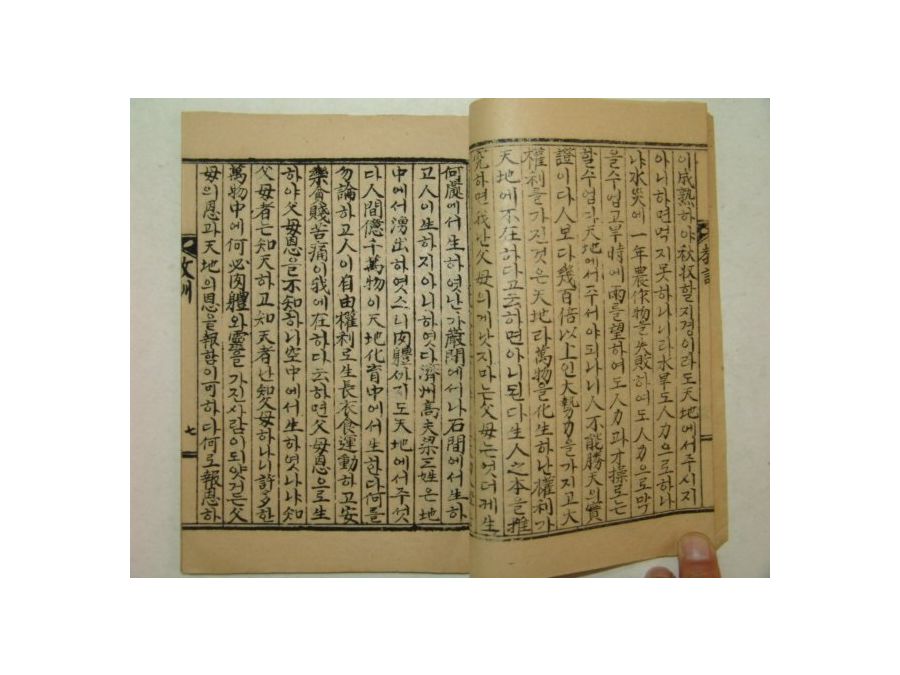 이成熟하야秋收할지경이라도天地에서주시지
아니하면먹지못하나니라水旱도人力으로하나
냐水災에一年農作物을失敗하여도人力으로막
을수업고旱時에雨를望하여도人力과才操로는
할수업다天地에서주서야되나니人不能勝天의實
證이다人보다幾百倍以上인大勢力을가지고大
權利를가진것은天地라萬物을化生하난權利가
天地에不在하다고云하면아니된다生人之本을推
究하면我난父母의게낫지마는父母는엇더케生
敎訓
何處에서生하엿난가巖間에서나石間에서生하
고人이生하지아니하엿다濟州高夫梁三姓은地
中에서湧出하엿스니肉體까지도天地에서주섯
다人間億千萬物이天地化育中에서生한다何를
勿論하고人이自由權利로生長衣食運動하고安
樂貧賤苦痛이我에在하다云하면父母恩으로生
하야父母恩을不知하니空中에서生하엿나냐知
父母者는知天하고知天者난知父母하나니許多한
萬物中에何必肉體와靈을가진사람이되얏거든父
母의恩과天地의恩을報함이可하다何로報恩하
七